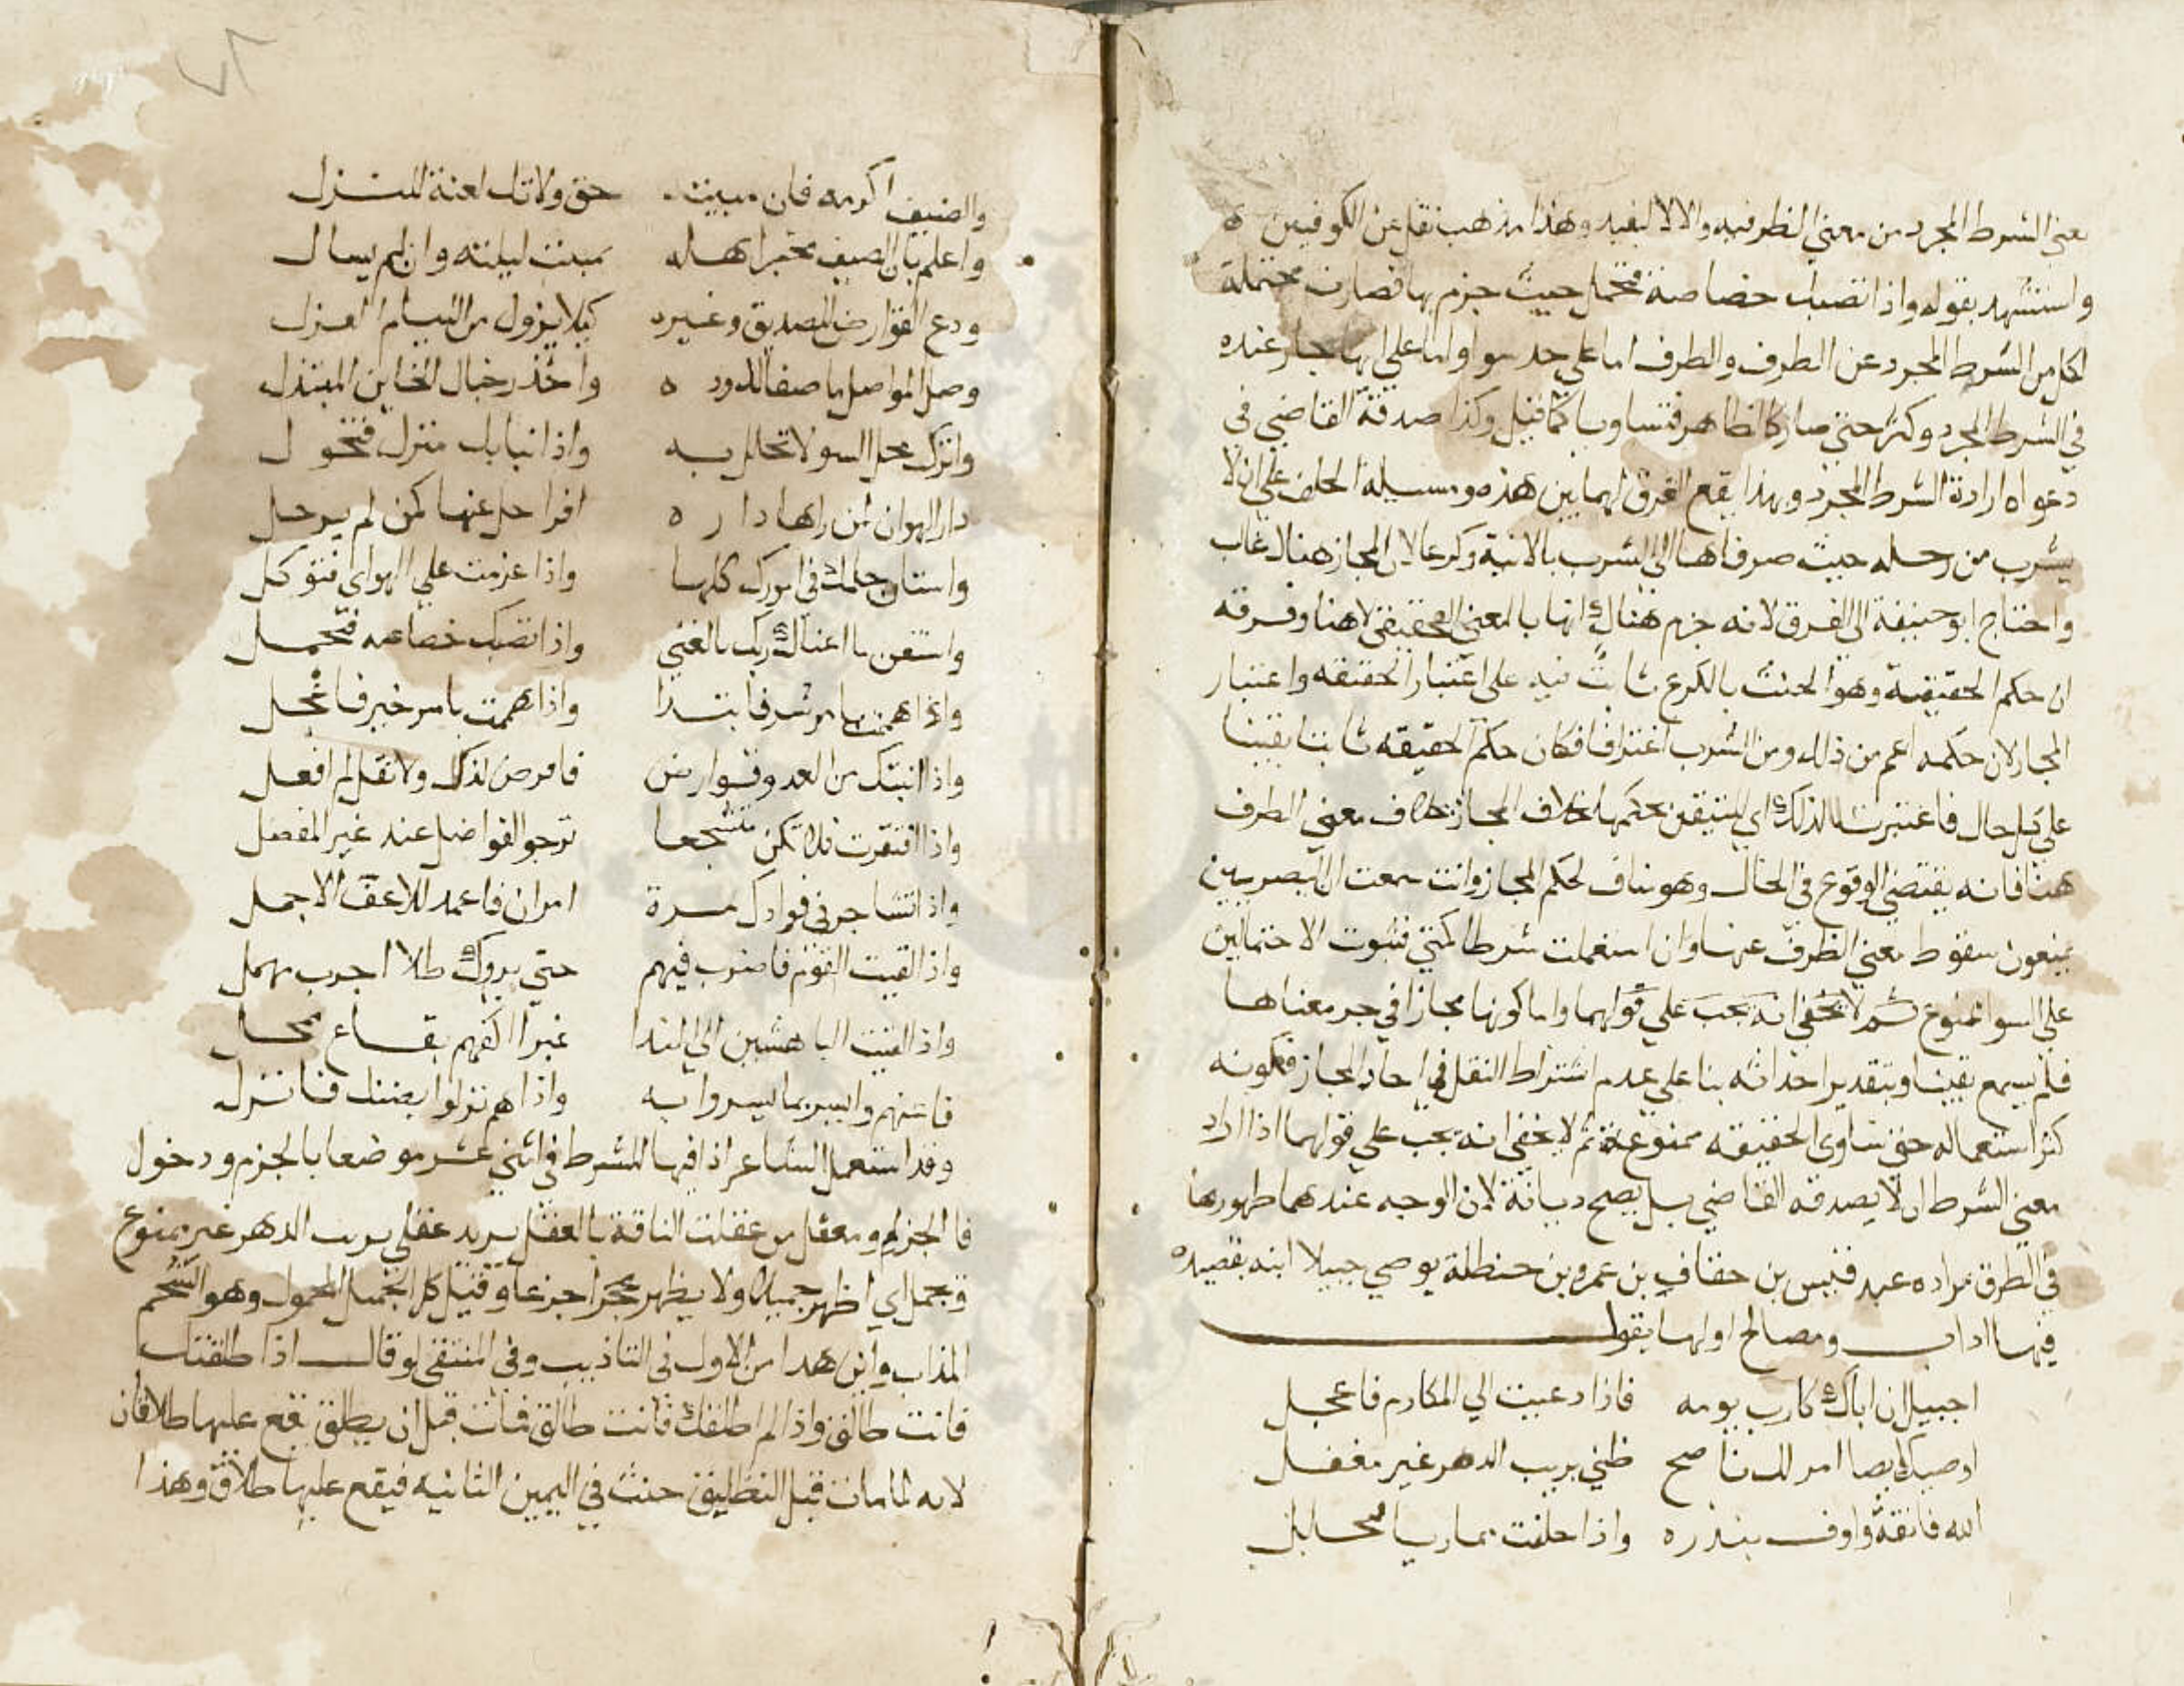 معنى الشرط المجرد من معنى الظرفية والا لا ليفيد وهذا مذهب نقل عن الكوفيين ه
واستشهد بقوله واذا تصبك خصاصة فتحمل حيث جزم بها فصارت محتملة
لكل من الشرط المجرد عن الظرف والظرف اما على حد سوا واما على انها مجاز عنده
في الشرط المجرد وكثر حتى صار كالظاهر فتساويا كما قيل وكذا صدقة القاضي في
دعواه ارادة الشرط المجرد وبهذا يقع الفرق لهما بين هذه ومسيلة الحلف على ان لا
يشرب من رحله حيث صرفاها الى الشرب بالانية وكرعا لان المجاز هناك غالب
واحتاج ابو حنيفة الى الفرق لانه جزم هناك انها بالمعنى الحقيقى لا هنا وفرقه
ان حكم الحقيقية وهو الحنث بالكرع ثابت فيه على اعتبار الحقيقه واعتبار
المجاز لان حكمه اعم من ذلك ومن الشرب اغترافا فكان حكم الحقيقه ثابتا يقينا
على كل حال فاعتبرت لذلك اي لتيقن حكمها بخلاف المجاز بخلاف معنى الظرف
هنا فانه يقتضى الوقوع في الحال وهو مناف لحكم المجاز وانت سمعت ان البصريين
يمنعون سقوط معنى الظرف عنها وان استعملت شرطا كمتى فثبوت الاحتمالين
على السوا ممنوع ثم لا يخفى انه يجب على قولهما واما كونها مجازا في جر معناها
فلم يسمع يقينا وبتقدير احداثه بنا على عدم اشتراط النقل في احاد المجاز فكونه
كثر استعماله حتى تساوى الحقيقه ممنوعة ثم لا يخفى انه يجب على قولهما اذا اراد
معنى الشرط ان لا يصدقه القاضي بل يصح ديانة لان الوجه عندهما ظهورها
في الظرف مراده عبد قيس بن خفاف بن عمرو بن حنظلة يوصي جبيلا ابنه بقصيده
فيها اداب ومصالح اولها يقول
اجبيل ان اباك كارب يومه فاذا دعيت الي المكارم فاعجل
اوصيك ايصا امر لك ناصح ظنى بريب الدهر غير مغفل
الله فاتقه واوف بنذره واذا حلفت مماريا فتحلل
والضيف اكرمه فان مبيته حق ولا تك لعنة للنزل
واعلم بان الضيف مخبر اهله بمبيت ليلته وان لم يسال
ودع القوارض للصديق وغيره كيلا يزول من اللئام العزل
وصل المواصل ما صفا لك وده ه واحذر حبال الخاين المبتذل
واترك محل السو لا تحلل به واذا نبا بك منزل فتحول
دار الهوان لمن راها داره افراحل عنها كمن لم يرحل
واستان حلمك في امورك كلها واذا عزمت علي الهوى فتوكل
واستغن ما اغناك ربك بالغنى واذا تصبك خصاصه فتحمل
واذا هممت بامر شر فاتئدا واذا هممت بامر خير فاعجل
واذا اتتك من العدو قوارض فاقرص كذاك ولا تقل لم افعل
واذا افتقرت فلا تكن متخشعا ترجو الفواضل عند غير المفضل
واذا تشاجر في فوادك مرة امران فاعمد للاعف الاجمل
واذا لقيت القوم فاضرب فيهم حتي يروك طلا اجرب مهمل
واذا لقيت الباهشين الي الندا غبرا اكفهم بقاع ممحل
فاعنهم وايسر بما يسروا به واذا هم نزلوا بضنك فانزل
وقد استعمل الشاعر اذا فيها للشرط في اثني عشر موضعا بالجزم ودخول
فا الجزا ومعقل من عقلت الناقة بالعقل يريد عقلي بريب الدهر غير ممنوع
وتجمل اي اظهر جميلا ولا يظهر عجزا جزعا وقيل كل الجميل المحمول وهو الشحم
المذاب واين هذا من الاول في التاذيب وفي المنتقى لو قال اذا طلقتك
فانت طالق واذا لم اطلقك فانت طالق فمات قبل ان يطلق يقع عليها طلاقان
لانه لما مات قبل التطليق حنث في اليمين الثانيه فيقع عليها طلاق وهذا